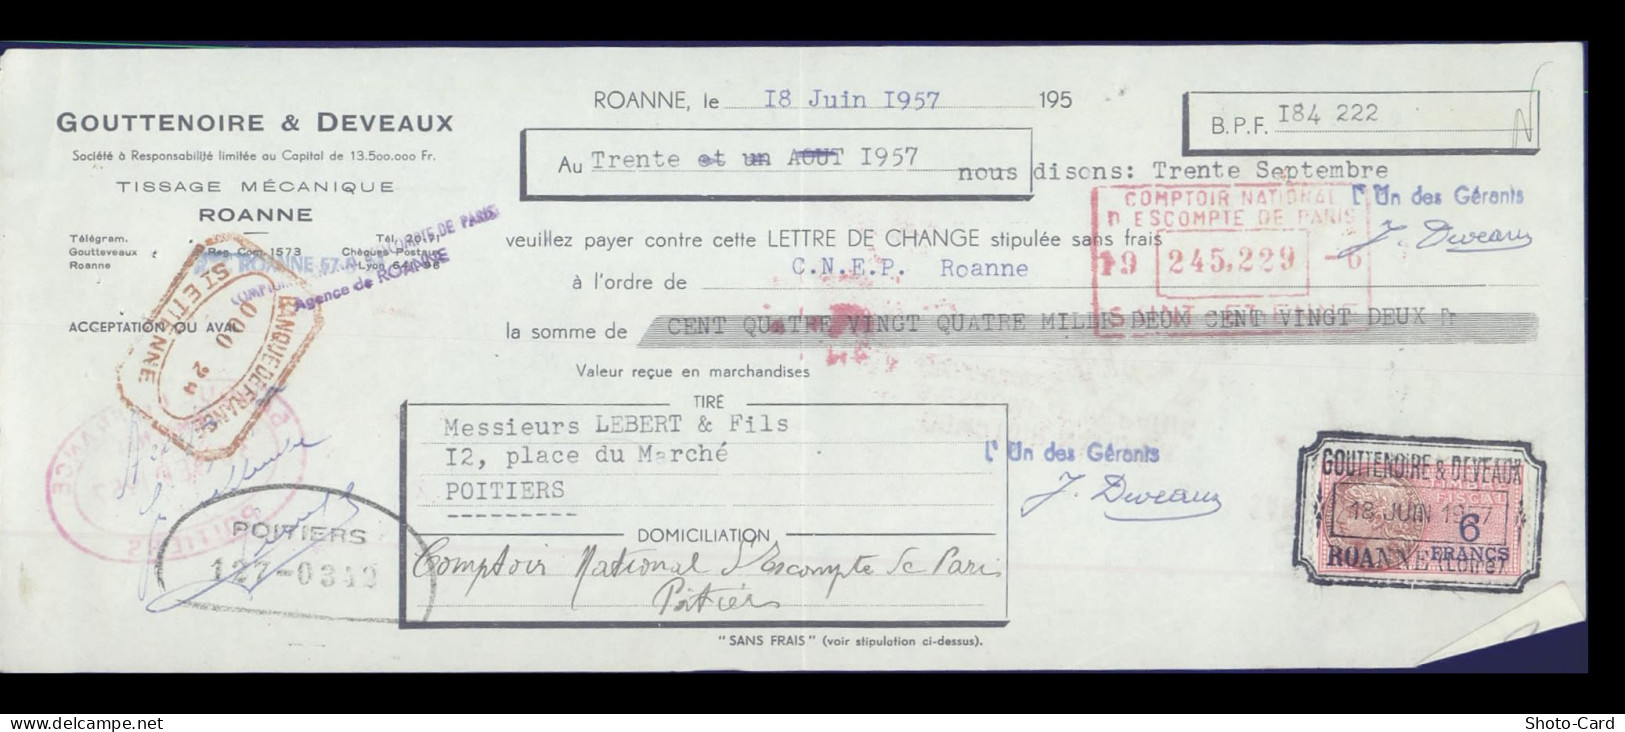 ROANNE, le 18 Juin 1957 195
B.P.F. 184 222
GOUTTENOIRE & DEVEAUX
Société à Responsabilité limitée au Capital de 13.500.000 Fr.
TISSAGE MÉCANIQUE
ROANNE
Au Trente et un AOUT 1957
nous disons: Trente Septembre
L'Un des Gérants
J. Deveaux
COMPTOIR NATIONAL
D'ESCOMPTE DE PARIS
19 245,229 -6
SAINT ETIENNE
Télégram.
Goutteveaux
Roanne
Reg. Com. 1573
Tél. 20.71
Chèques Postaux
Lyon
ROANNE 57
COMPTOIR ESCOMPTE DE PARIS
Agence de ROANNE
veuillez payer contre cette LETTRE DE CHANGE stipulée sans frais
à l'ordre de C.N.E.P. Roanne
ACCEPTATION OU AVAL
BANQUE DE FRANCE
ST ETIENNE
la somme de CENT QUATRE VINGT QUATRE MILLE DEUX CENT VINGT DEUX
Valeur reçue en marchandises
TIRÉ
Messieurs LEBERT & Fils
12, place du Marché
POITIERS
L'Un des Gérants
J. Deveaux
POITIERS
POITIERS
127-0340
DOMICILIATION
Comptoir National d'Escompte de Paris
Poitiers
"SANS FRAIS" (voir stipulation ci-dessus).
GOUTTENOIRE & DEVEAUX
TIMBRE
FISCAL
18 JUIN 1957
6
FRANCS
ROANNE (Loire)
www.delcampe.net
Shoto-Card